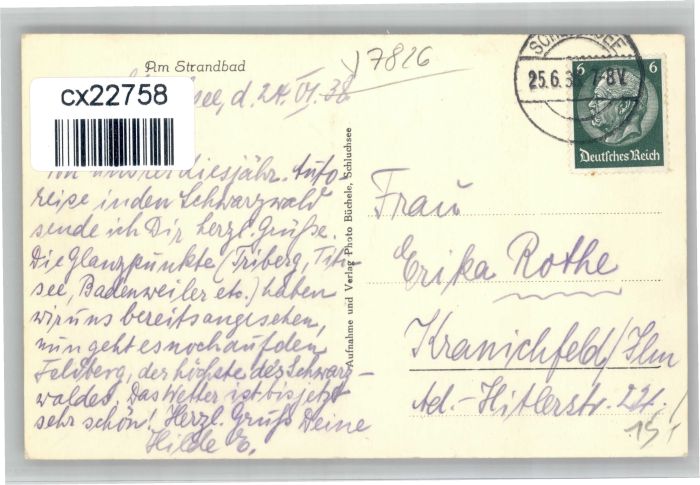 Am Strandbad
7826
cx22758
SCHLUCHSEE
25.6.38 7-8V
6 6
Deutsches Reich
see, d. 24. VI. 38
An unsrer diesjähr. Auto-
reise in den Schwarzwald
sende ich Dir herzl. Grüße.
Die Glanzpunkte (Triberg, Titi-
see, Badenweiler etc.) haben
wir uns bereits angesehen,
nun geht es noch auf den
Feldberg, der höchste des Schwarz-
waldes. Das Wetter ist bis jetzt
sehr schön! Herzl. Gruß Deine
Hilde E.
Aufnahme und Verlag Photo Büchele, Schluchsee
Frau
Erika Rothe
Kranichfeld/Ilm
Ad.-Hitlerstr. 221.